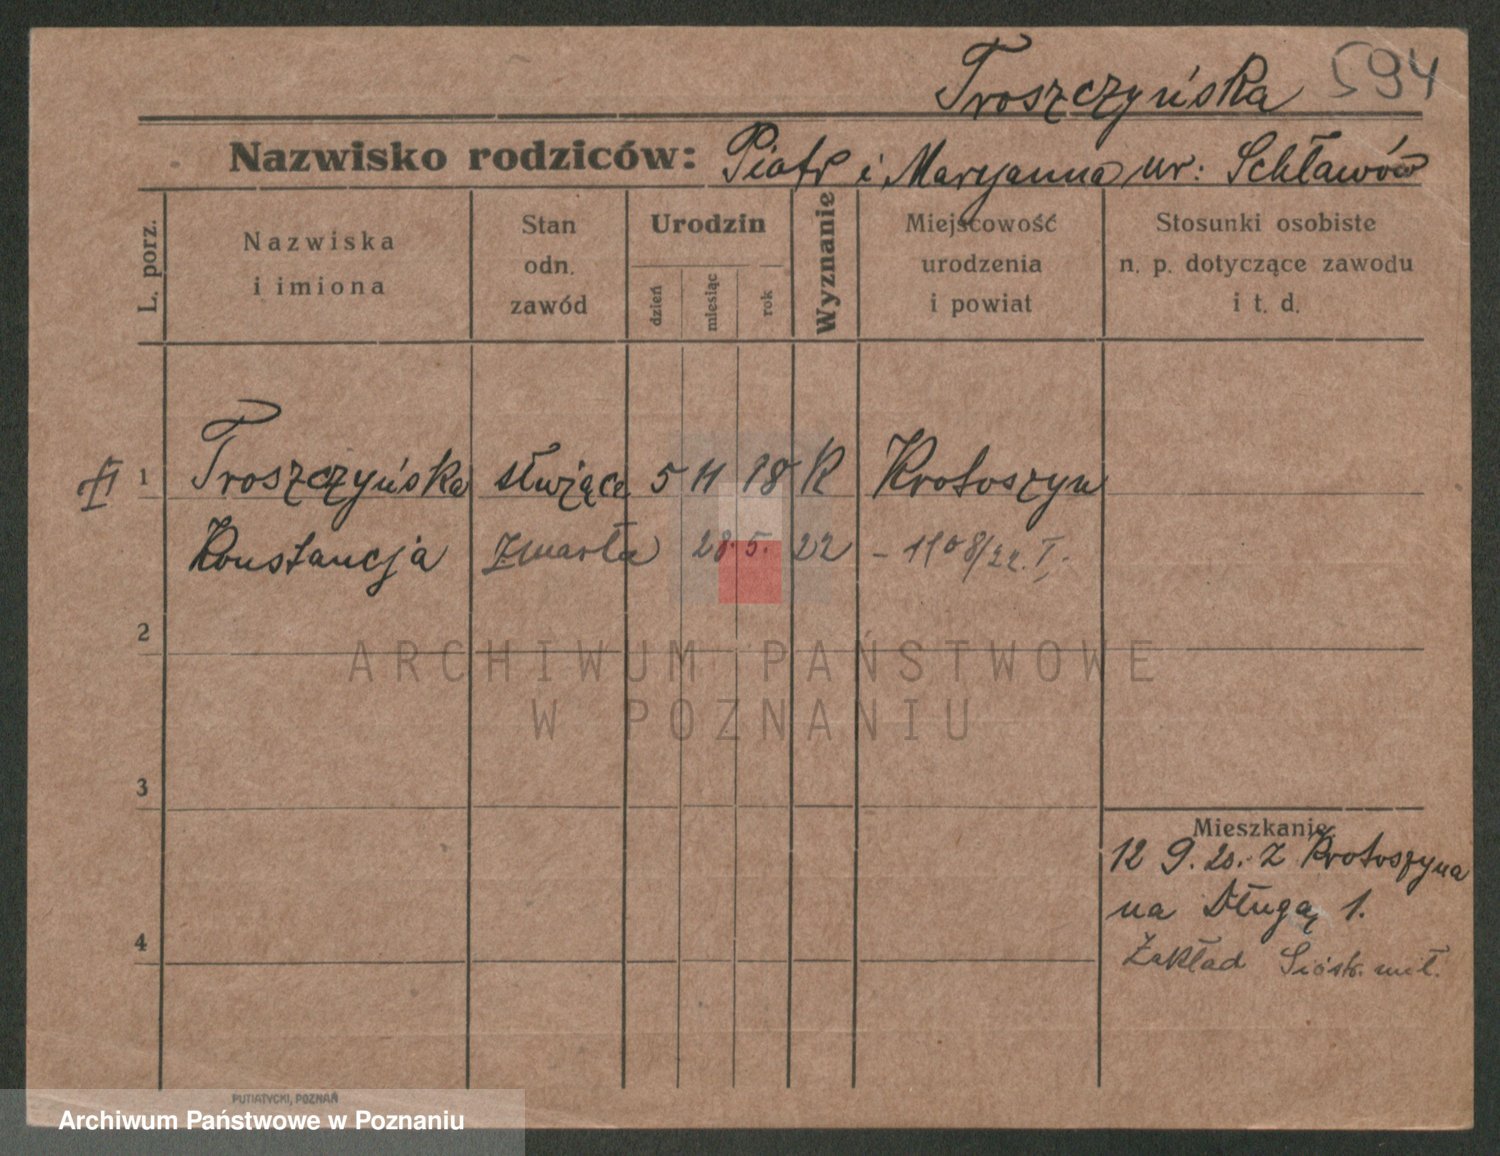 Troszczyńska 594
Nazwisko rodziców: Piotr i Maryanna ur:
L. porz.
Nazwiska
i imiona
Stan
odn.
zawód
Urodzin
dzień
miesiąc
rok
Wyznanie
Miejscowość
urodzenia
i powiat
Stosunki osobiste
n. p. dotyczące zawodu
i t. d.
1 Troszczyńska służąca 5 11 98 K Krotoszyn
Konstancja zmarła 28. 5. 22 – 1108/22. I.
2
ARCHIWUM PAŃSTWOWE
W POZNANIU
3
Mieszkanie
12 9. 20. z Krotoszyna
na Długą 1.
Zakład Sióstr. mił.
4
PUTIATYCKI, POZNAŃ
Archiwum Państwowe w Poznaniu